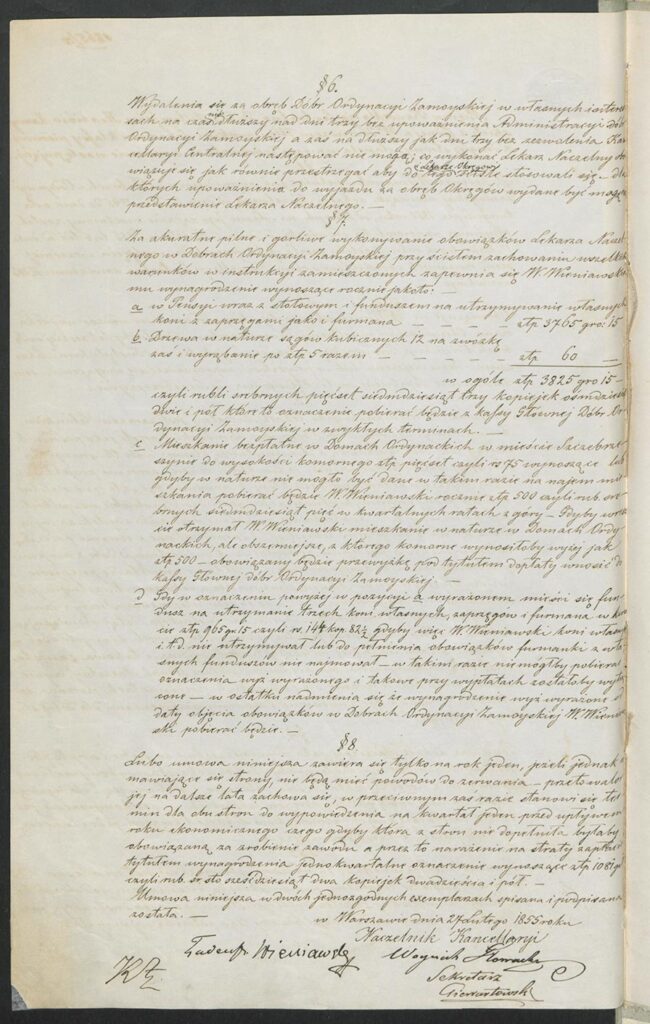 § 6.
Wydalenia się za obręb Dóbr Ordynacyi Zamoyskiej w własnych interes-
sach na czas dłuższy nad dni trzy bez upoważnienia Administracyi Dóbr
Ordynacyi Zamoyskiej a zaś na dłuższy jak dni trzy bez zezwolenia Kan-
cellaryi Centralnej następować nie mogą, co wykonać Lekarz Naczelny obo-
wiązuje się jak równie przestrzegać aby do tego Lekarze Okręgowi stosowali się — dla
których upoważnienia do wyjazdu za obręb Okręgów wydane być mogą
przedstawienie Lekarza Naczelnego. —
§ 7.
Za akuratne pilne i gorliwe wykonywanie obowiązków Lekarza Naczel-
nego w Dobrach Ordynacyi Zamoyskiej przy ścisłem zachowaniu wszelkich
warunków w instrukcyi zamieszczonych zapewnia się W. Wieniawskie-
mu wynagrodzenie wynoszące rocznie jakoto: —
a w Pensyi wraz z stołowym i funduszem na utrzymywanie własnych
koni z zaprzęgami jako i furmana — złp 3765 gro: 15
b. Drzewa w naturze szągów kubicznych 12 na zwózkę
zaś i wyrąbanie po złp 5 razem — — — — złp 60 —
w ogóle złp 3825 gro 15 —
czyli rubli srebrnych pięćset siedmdziesiąt trzy kopiejek ośmdziesiąt
dwie i pół które to oznaczenie pobierać będzie z kassy Głównej Dóbr Or-
dynacyi Zamoyskiej w zwykłych terminach. —
c Mieszkanie bezpłatne w Domach Ordynackich w mieście Szczebrze-
szynie do wysokości komornego złp pięćset czyli rs 75 wynoszące lub
gdyby w naturze nie mogło być dane w takim razie na najem mie-
szkania pobierać będzie W. Wieniawski rocznie złp 500 czyli rub. sre-
brnych siedmdziesiąt pięć w kwartalnych ratach z góry — Gdyby wresz-
cie otrzymał W. Wieniawski mieszkanie w naturze w Domach Ordy-
nackich, ale obszerniejsze, z którego komorne wynosiłoby wyżej jak
złp 500 — obowiązany będzie przewyżkę pod tytułem dopłaty wnosić do
kassy Głównej dóbr Ordynacyi Zamoyskiej. —
d Gdy w oznaczeniu powyżej w pozycyi a wyrażonem mieści się fun-
dusz na utrzymanie trzech koni własnych, zaprzęgów i furmana w kwo-
cie złp 965 gr 15 czyli rs. 144 kop. 82½ gdyby więc W. Wieniawski koni własnych
i t.d. nie utrzymywał lub do pełnienia obowiązków furmanki z wła-
snych funduszów nie najmował — w takim razie niemógłby pobierać
oznaczenia wyż wyrażonego i takowe przy wypłatach zostałoby wytrą-
cone — w ostatku nadmienia się że wynagrodzenie wyż wyrażone od
daty objęcia obowiązków w Dobrach Ordynacyi Zamoyskiej W. Wieniaw-
ski pobierać będzie. —
§ 8
Lubo umowa niniejsza zawiera się tylko na rok jeden, jeżeli jednak u-
mawiające się strony, nie będą mieć powodów do zerwania —
jej na dalsze lata zachowa się, w przeciwnym zaś razie stanowi się ter-
min dla obu stron do wypowiedzenia na kwartał jeden przed upływem
roku ekonomicznego czego gdyby która z stron nie dopełniła byłaby
obowiązaną za zrobienie zawodu a przez to narażenie na straty zapłacić
tytułem wynagrodzenia jednokwartalne oznaczenie wynoszące złp 1081
czyli rub. sr. sto sześćdziesiąt dwa kopiejek dwadzieścia i pół. —
Umowa niniejsza w dwóch jednozgodnych exemplarzach spisana i podpisana
została. —
w Warszawie dnia 27 Lutego 1855 roku
Naczelnik Kancellaryi
Tadeusz Wieniawski
Sekretarz